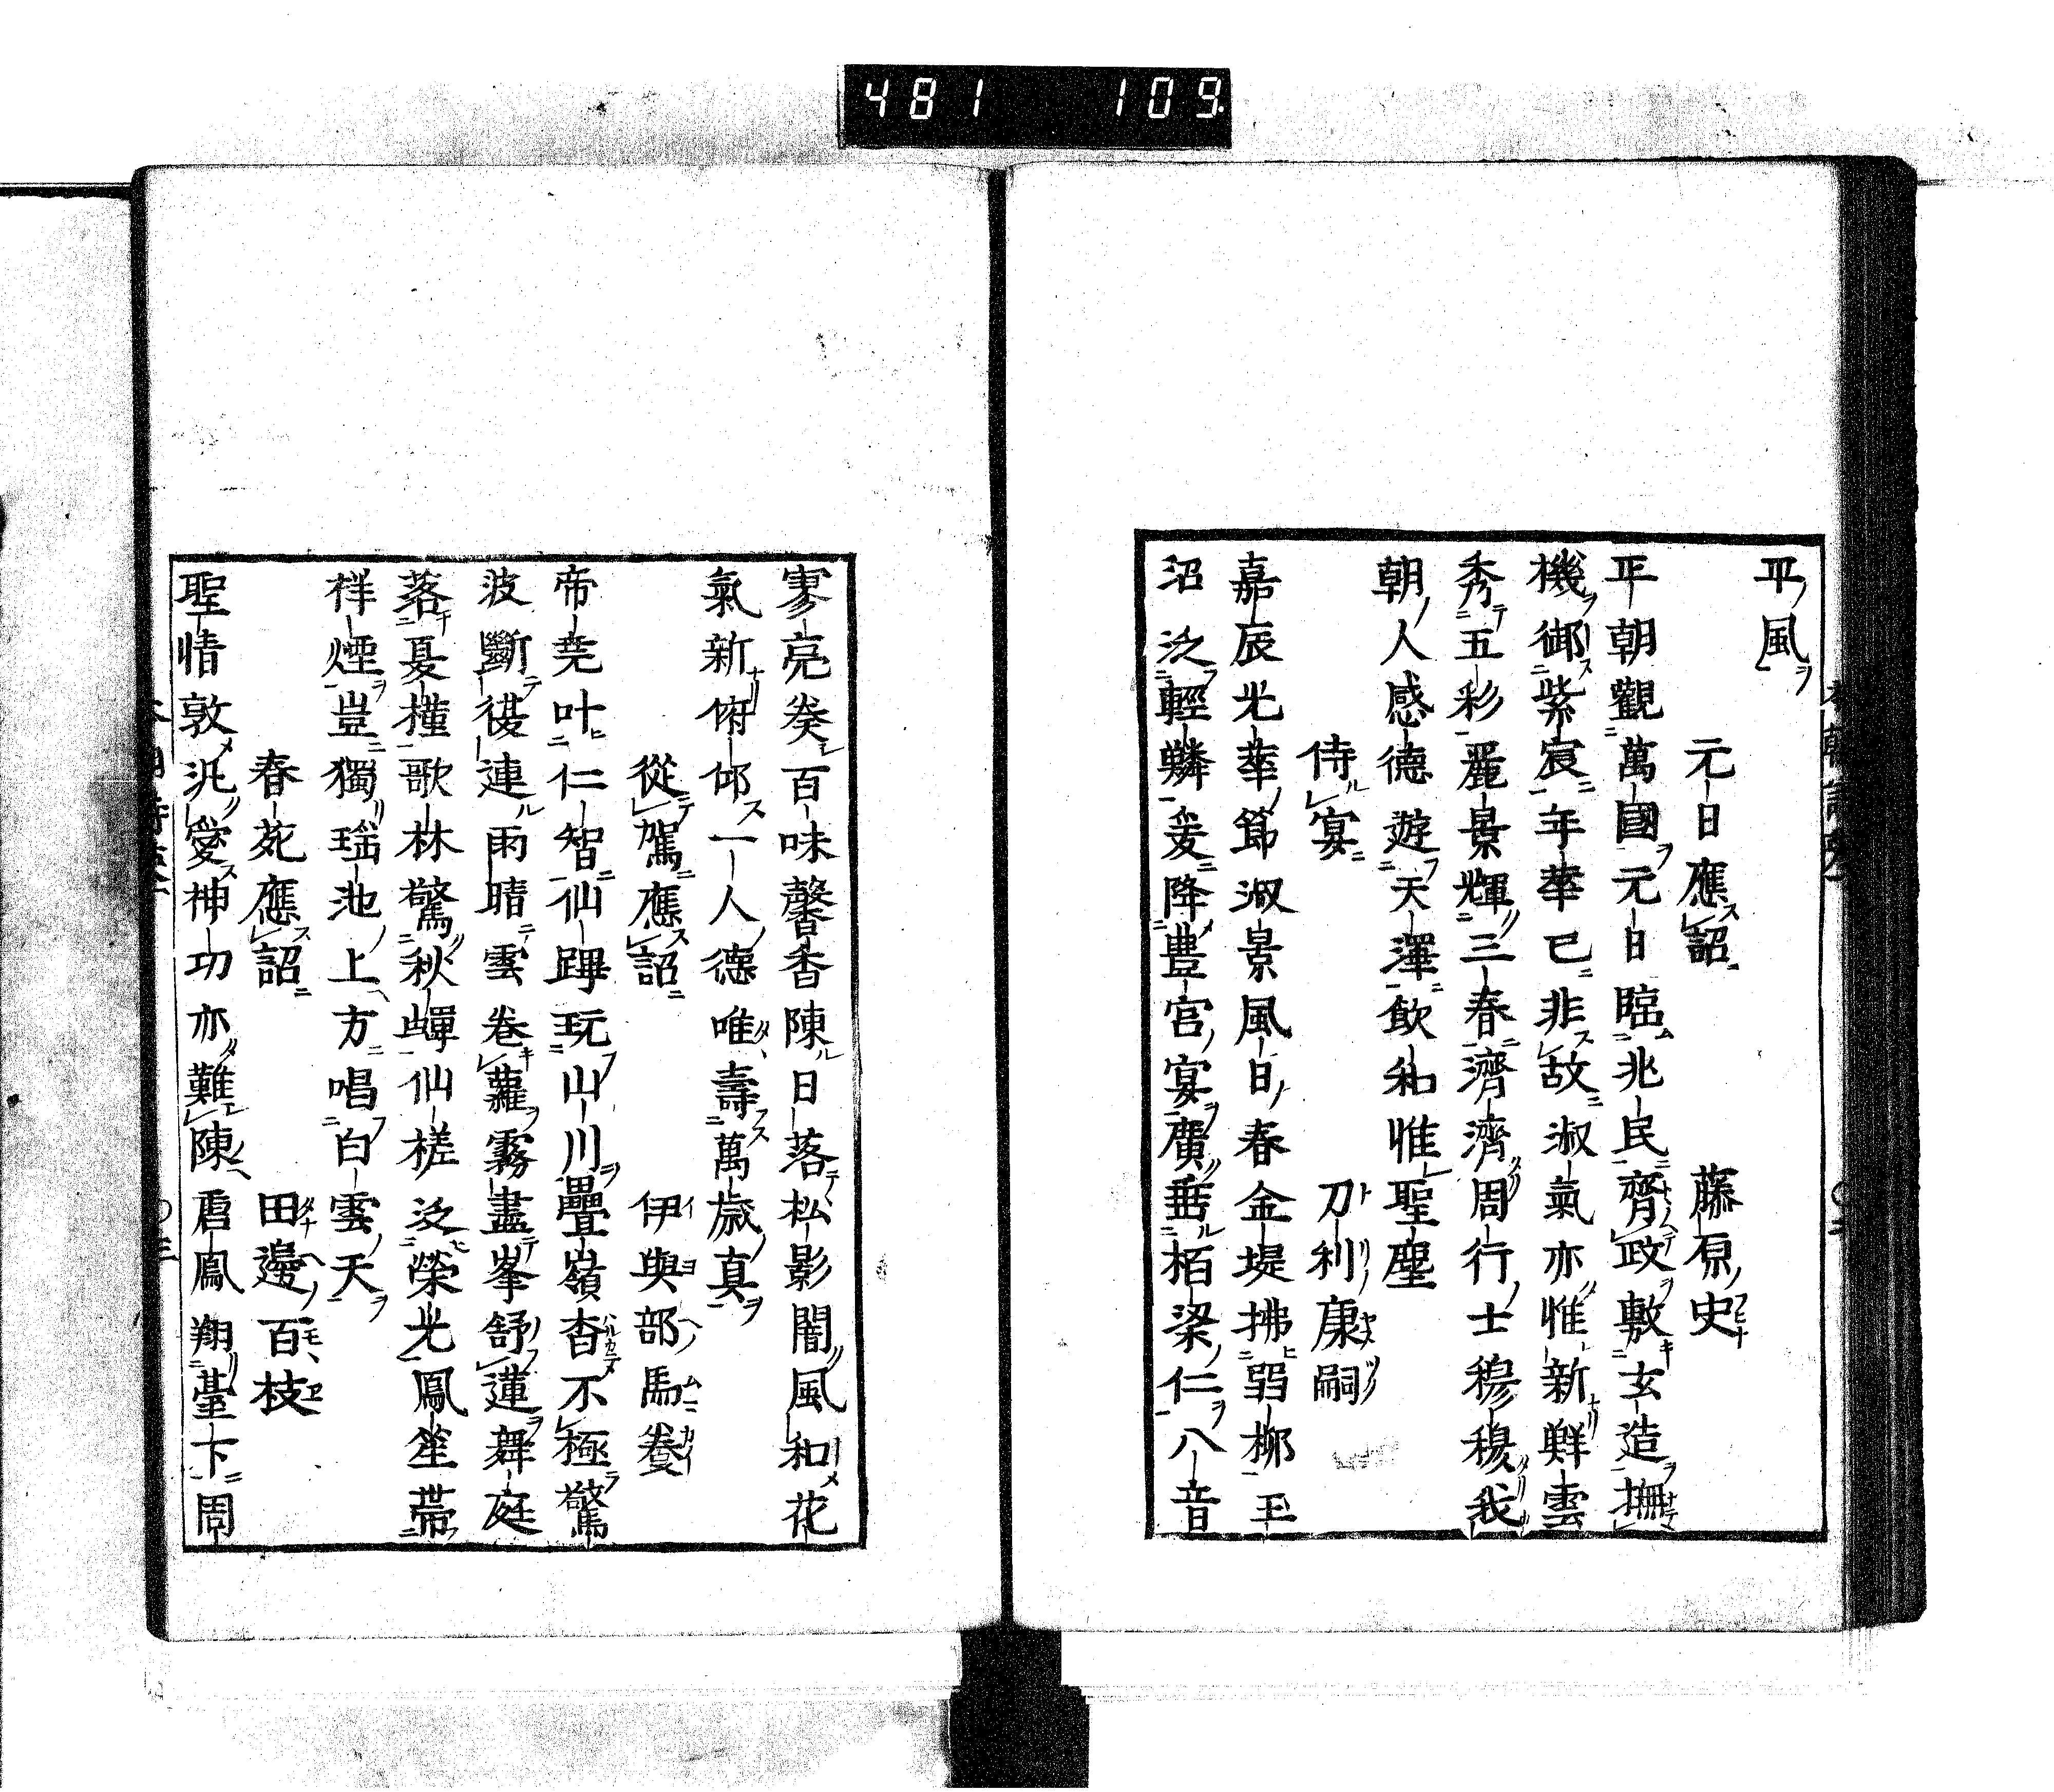 481 109
平風
元日應詔 藤原史
平朝觀萬國元日臨兆民齊政敷玄造撫
機御紫宸年華已非故淑氣亦惟新鮮雲
秀五彩麗景輝三春濟濟周行士穆穆我
朝人感德遊天澤飲和惟聖塵
侍宴 刀利康嗣
嘉辰光華節淑景風日春金堤拂弱柳玉
沼泛輕鱗爰降豊宮宴廣垂栢梁仁八音
寥亮奏百味馨香陳日落松影闇風和花
氣新俯仰一人德唯壽萬歲真
從駕應詔 伊與部馬養
帝堯叶仁智仙蹕玩山川疊嶺杳不極驚
波斷復連雨晴雲卷蘿霧盡峯舒蓮舞庭
落夏槿歌林驚秋蟬仙槎泛榮光鳳笙帶
祥煙豈獨瑤池上方唱白雲天
春苑應詔 田邊百枝
聖情敦汎愛神功亦難陳唐鳳翔臺下周